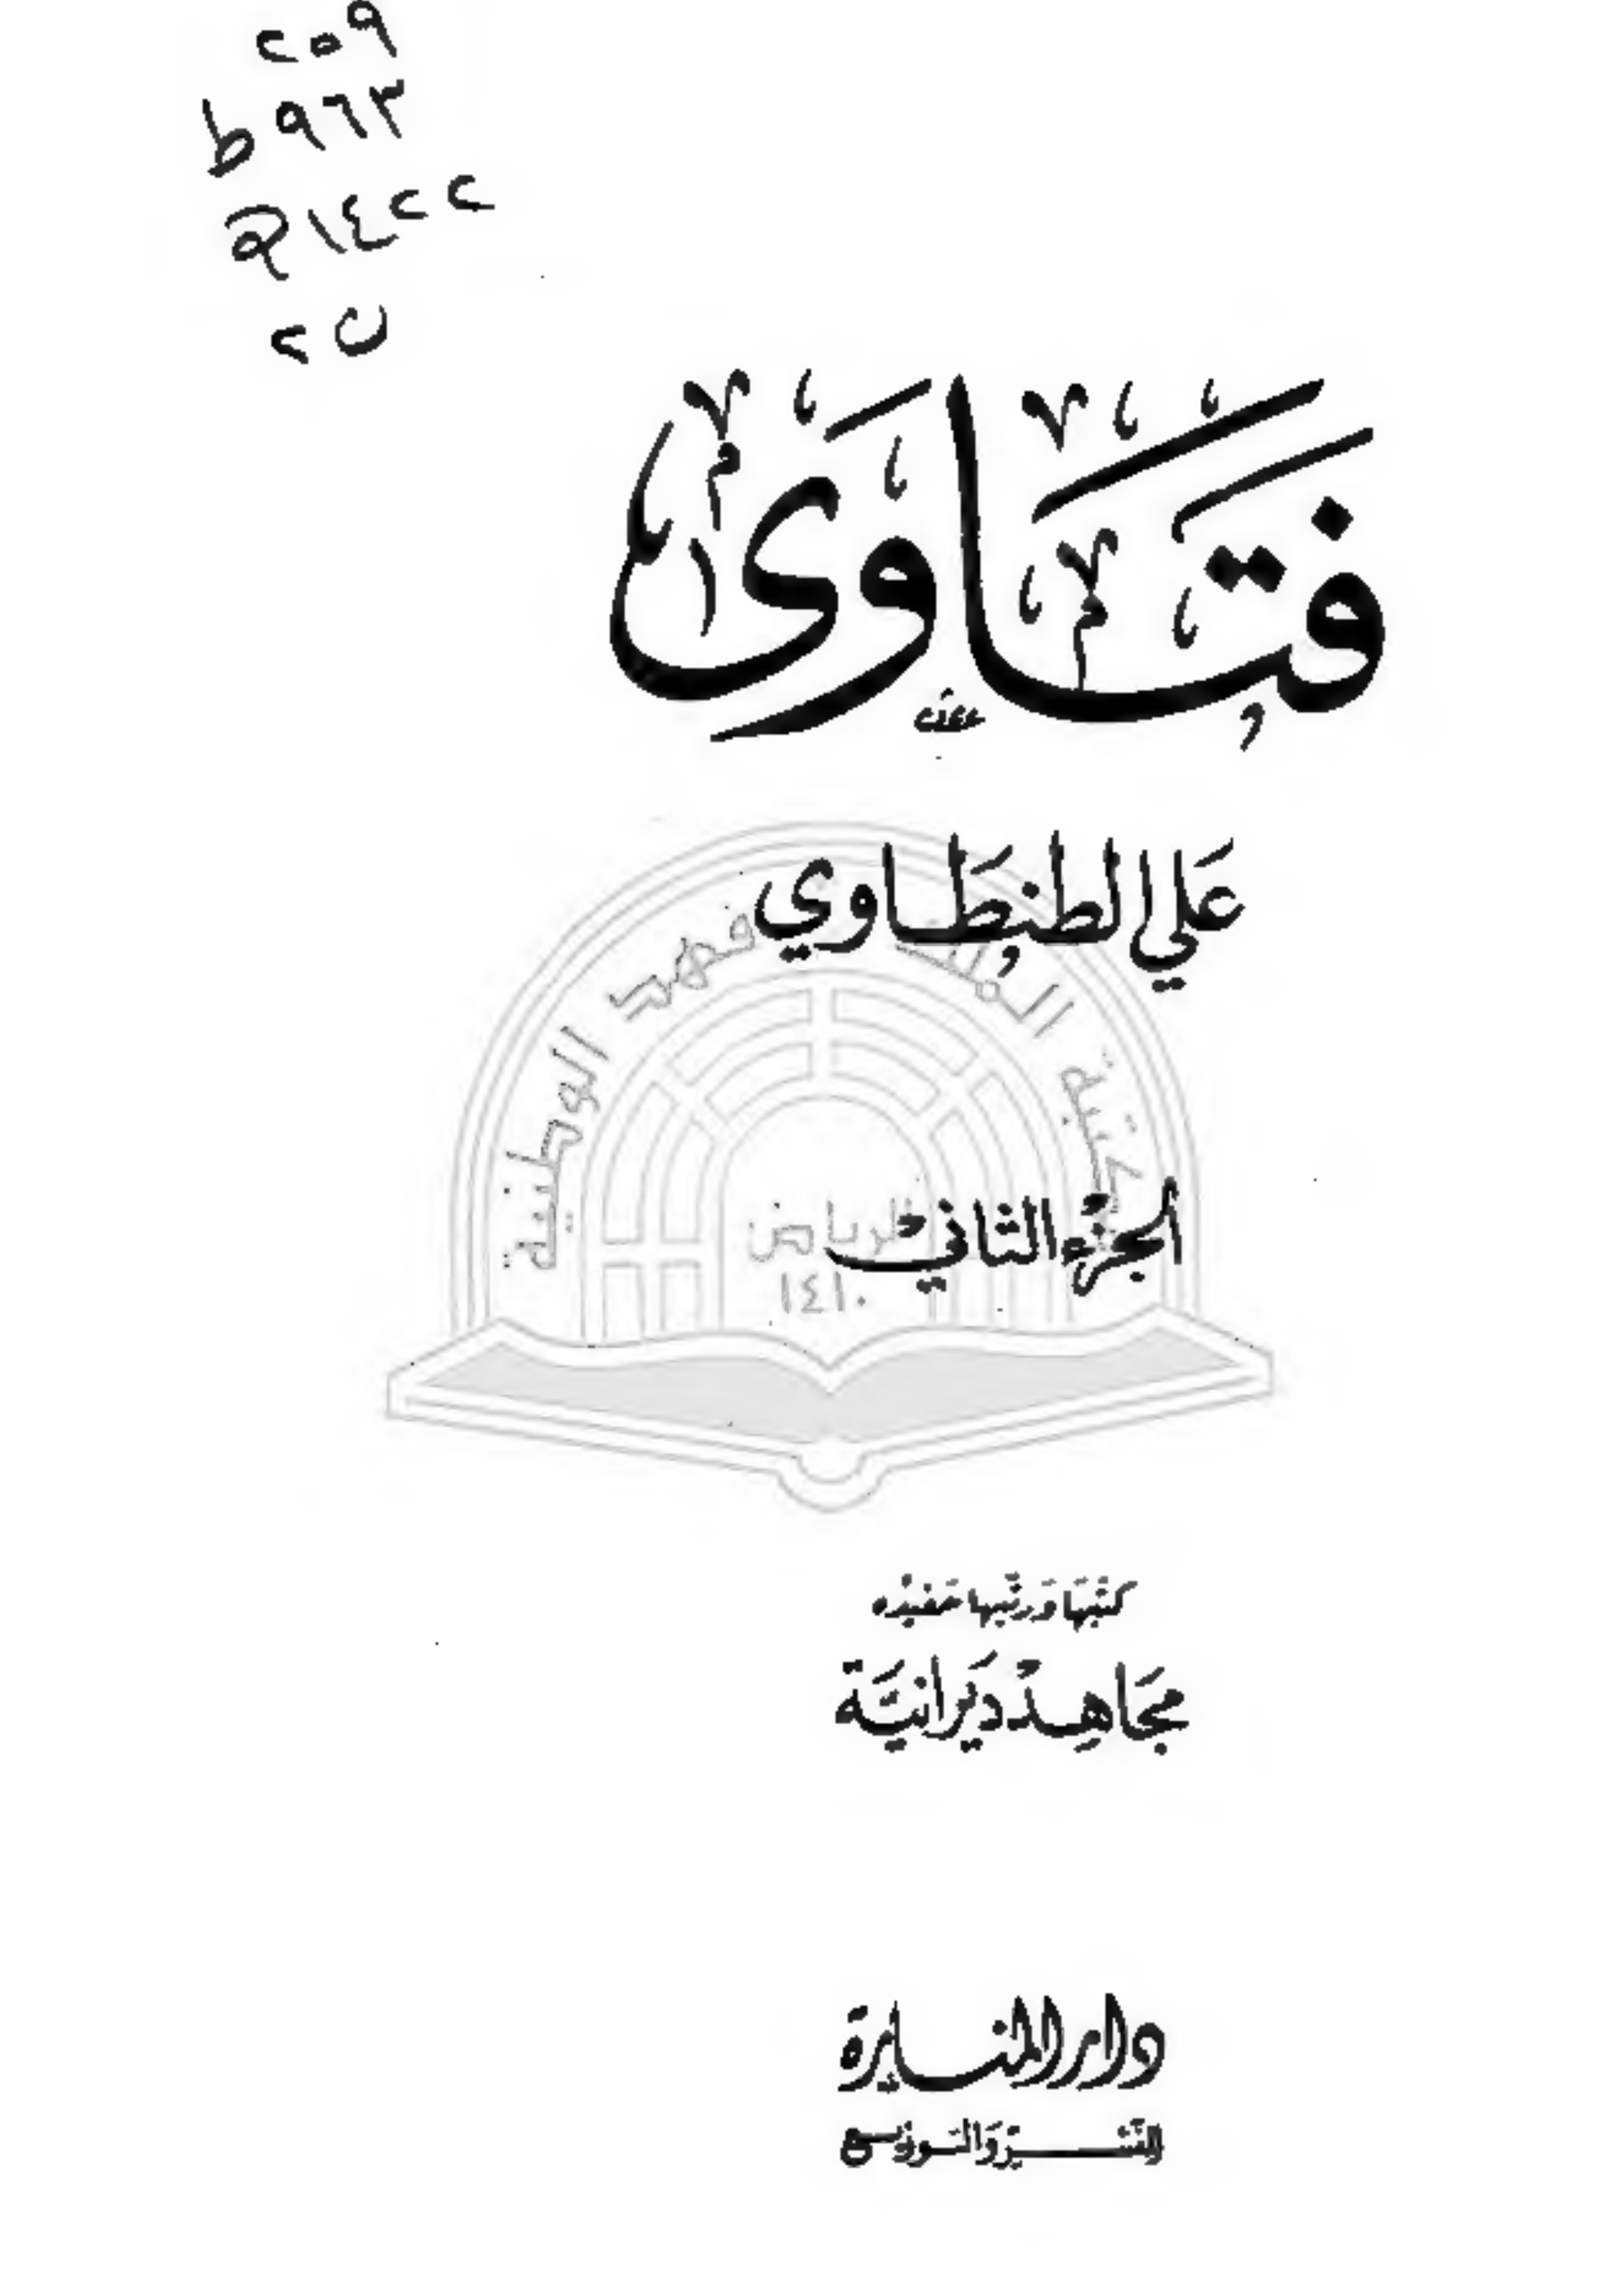 ٢٥٩
ط ٩٦٣
م ١٤٢٢
ن ٢
فتاوى
علي الطنطاوي
مكتبة الملك فهد الوطنية
الجزء الثاني
الرياض
١٤١٠
كتبها ورتبها حفيده
مجاهد ديرانية
دار المنارة
للنشر والتوزيع